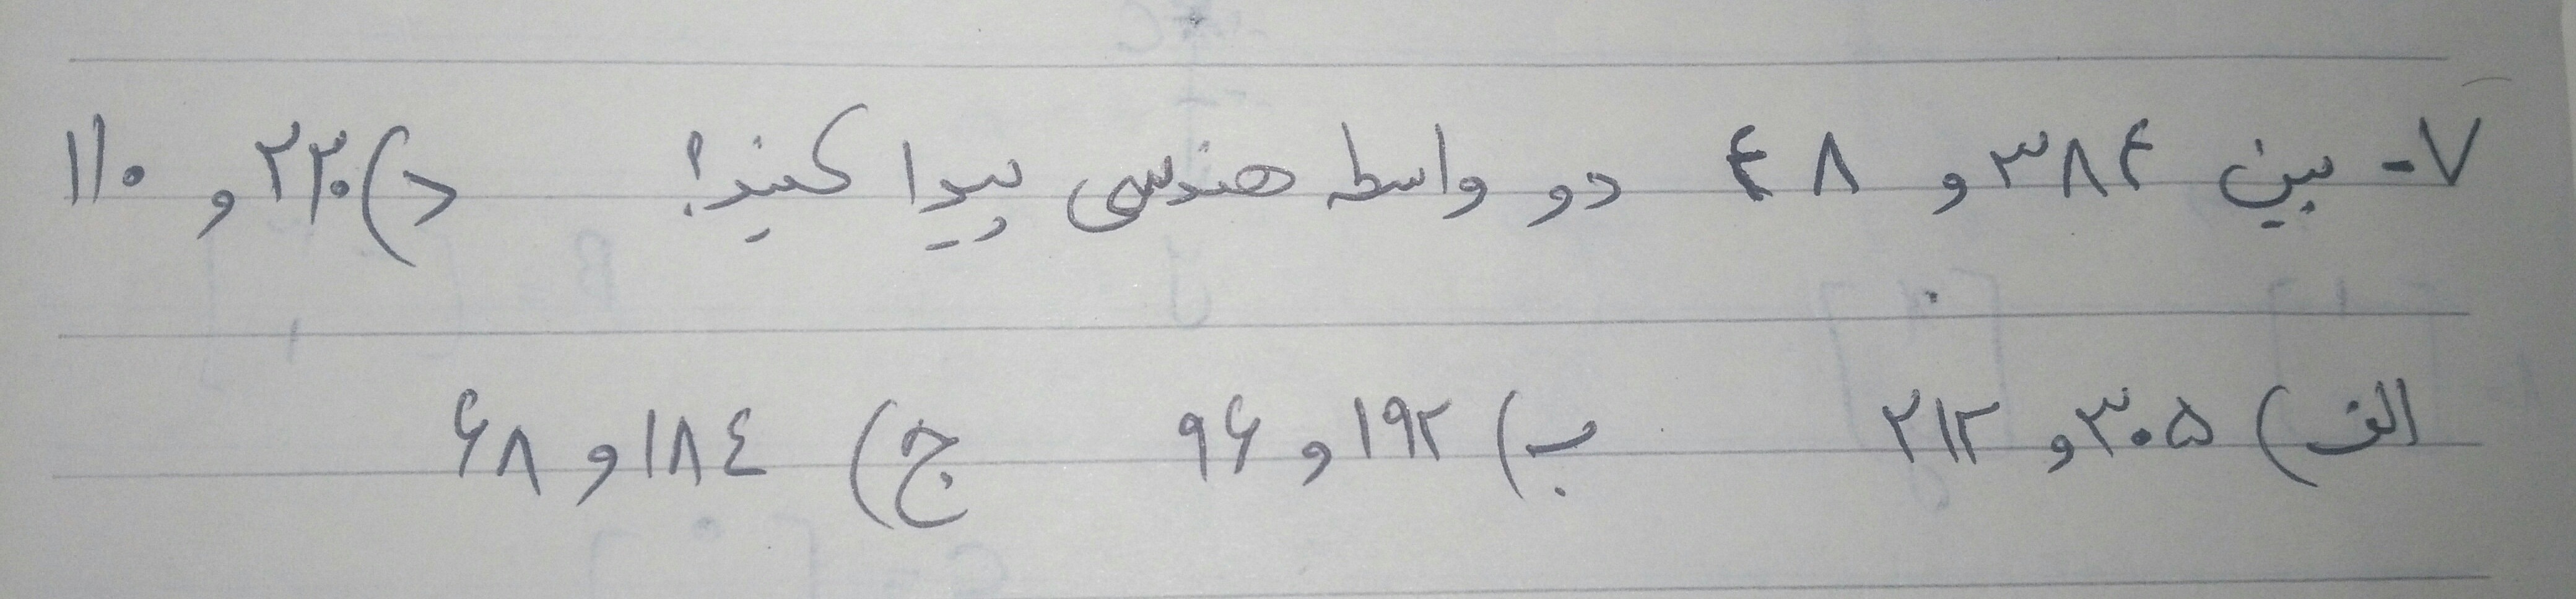 ۷- بین ۳۸۴ و ۴۸ دو واسطه هندسی پیدا کنید! د) ۲۲۰ و ۱۱۰
الف) ۳۰۵ و ۲۱۲ ب) ۱۹۲ و ۹۶ ج) ۱۸۴ و ۶۸